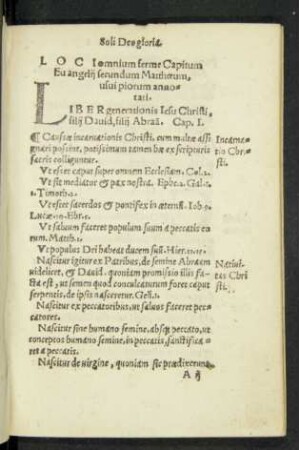 Soli Deo gloria.
LOCI omnium ferme Capitum
Euangelij secundum Matthæum,
usui piorum anno-
tati.
LIBER generationis Iesu Christi,
filij Dauid, filij Abraã. Cap. I.
¶ Causæ incarnationis Christi, cum multæ assi
gnari possint, potissimum tamen hæ ex scripturis
sacris colliguntur.
Incarna-
tio Chri-
sti.
Vt esset caput super omnem Ecclesiam. Col.1.
Vt sit mediator & pax nostra. Ephe.2. Gal.
1. Timoth.2.
Vt esset sacerdos & pontifex in æternũ. Ioh.
Lucæ Ebr.
Vt saluum faceret populum suum à peccatis eo
rum. Matth.1.
Vt populus Dei habeat ducem suũ. Hier.
Nascitur igitur ex Patribus, de semine Abraæ
uidelicet, & Dauid. quoniam promissio illis fa-
cta est, ut semen quod conculcaturum foret caput
serpentis, de ipsis nasceretur. Ges.
Natiui-
tas Chri
sti.
Nascitur ex peccatoribus, ut saluos faceret pec-
catores.
Nascitur sine humano semine, absq; peccato, ut
conceptos humano semine, in peccatis, sanctifica-
ret à peccatis.
Nascitur de uirgine, quoniam sic prædixerunt
A ij